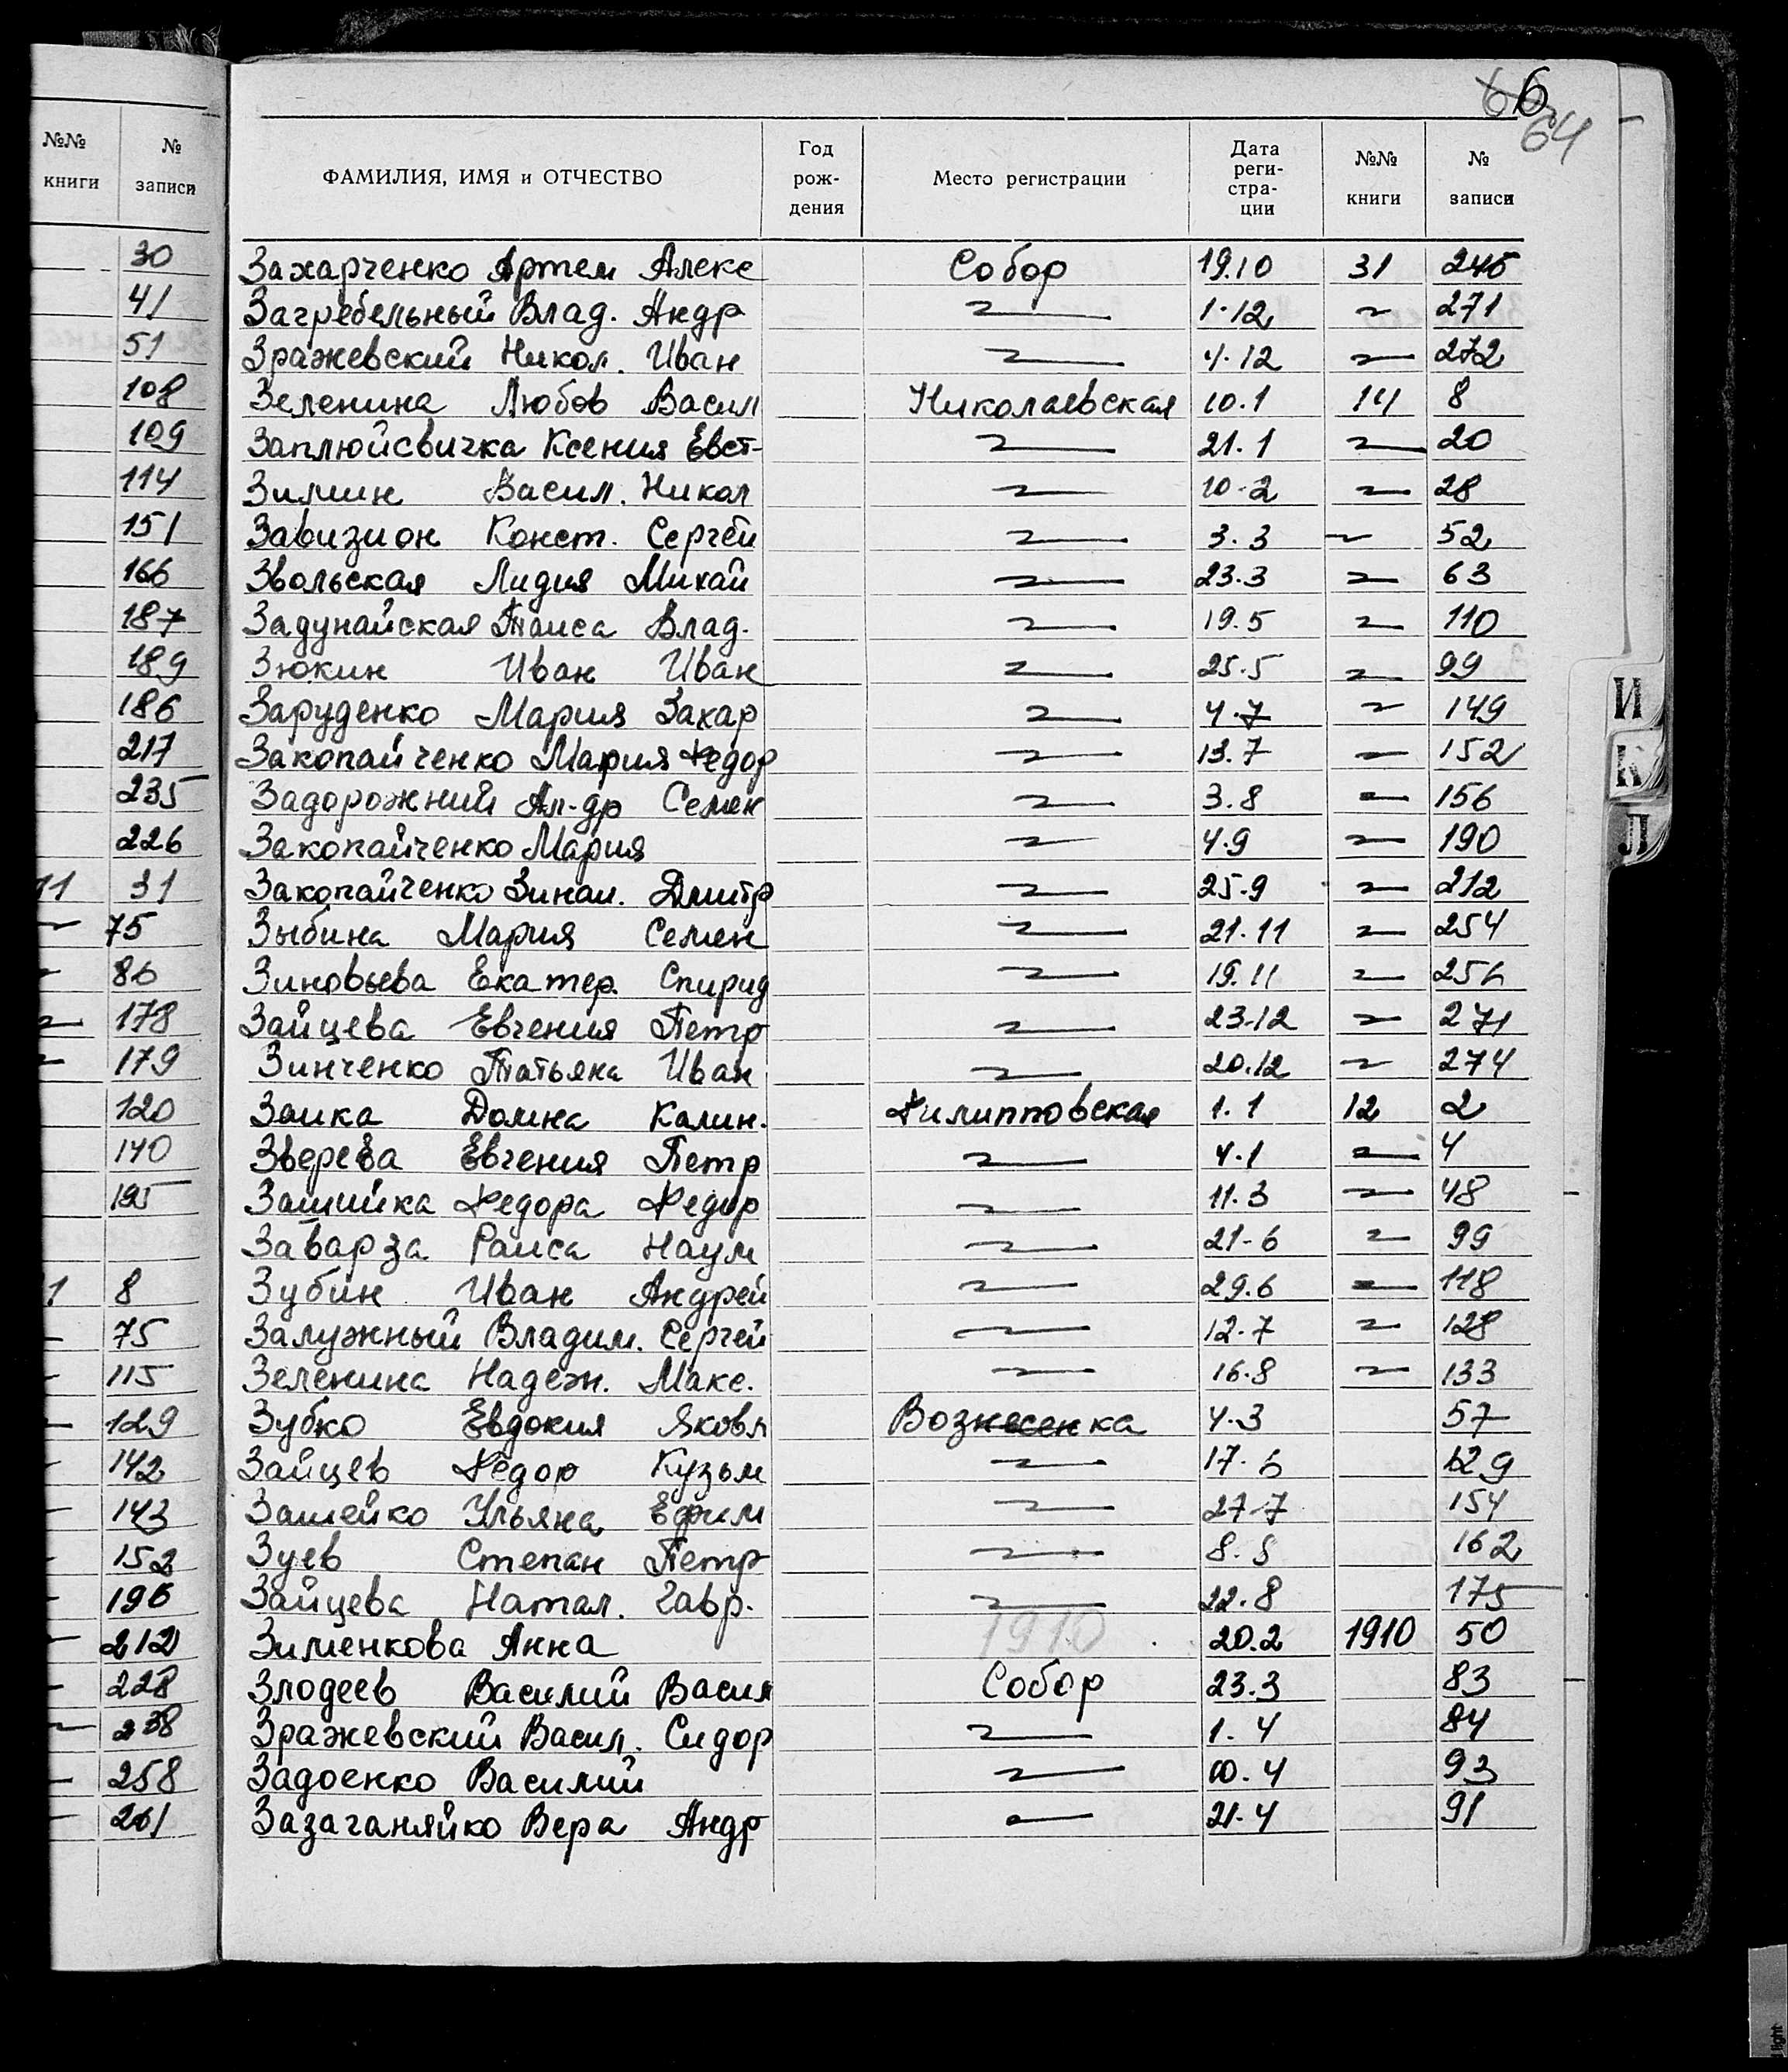 6
64
№№ книги № записи
ФАМИЛИЯ, ИМЯ и ОТЧЕСТВО Год рож- дения Место регистрации Дата реги- стра- ции №№ книги № записи
30 Захарченко Артем Алекс Собор 19.10 31 245
41 Загребельный Влад. Андр 1.12 271
51 Зражевский Никол. Иван 4.12 272
108 Зеленина Любов Васил Николаевская 10.1 14 8
109 Заплюйсвичка Ксения Евст- 21.1 20
114 Зимин Васил. Никол 10.2 28
151 Завизион Конст. Сергей 3.3 52
166 Звольская Лидия Михай 23.3 63
187 Задунайская Таиса Влад. 19.5 110
189 Зюкин Иван Иван 25.5 99
186 Заруденко Мария Захар 4.7 149
217 Закопайченко Мария Федор 13.7 152
235 Задорожний Ал-др Семен 3.8 156
226 Закопайченко Мария 4.9 190
11 31 Закопайченко Зинаи. Дмитр 25.9 212
75 Зыбина Мария Семен 21.11 254
86 Зиновьева Екатер. Спирид 19.11 256
178 Зайцева Евгения Петр 23.12 271
179 Зинченко Татьяна Иван 20.12 274
120 Заика Домна Калин. Филипповская 1.1 12 2
140 Зверева Евгения Петр 4.1 4
195 Федора Федор 11.3 48
Заварза Раиса Наум 21-6 99
1 8 Зубин Иван Андрей 29.6 118
75 Залужный Владим. Сергей 12.7 128
115 Зеленина Надеж. Макс. 16.8 133
129 Зубко Евдокия Яковл Вознесенка 4.3 57
142 Зайцев Федор Кузьм 17.6 129
143 Зашейко Ульяна Ефим 27.7 154
152 Зуев Степан Петр 8.8 162
196 Зайцева Натал. Гавр. 22.8 175
212 Зименкова Анна 1910 20.2 1910 50
228 Злодеев Василий Васил Собор 23.3 83
238 Зражевский Васил. Сидор 1.4 84
258 Задоенко Василий 10.4 93
261 Зазаганяйко Вера Андр 21.4 91
И
К
Л
light